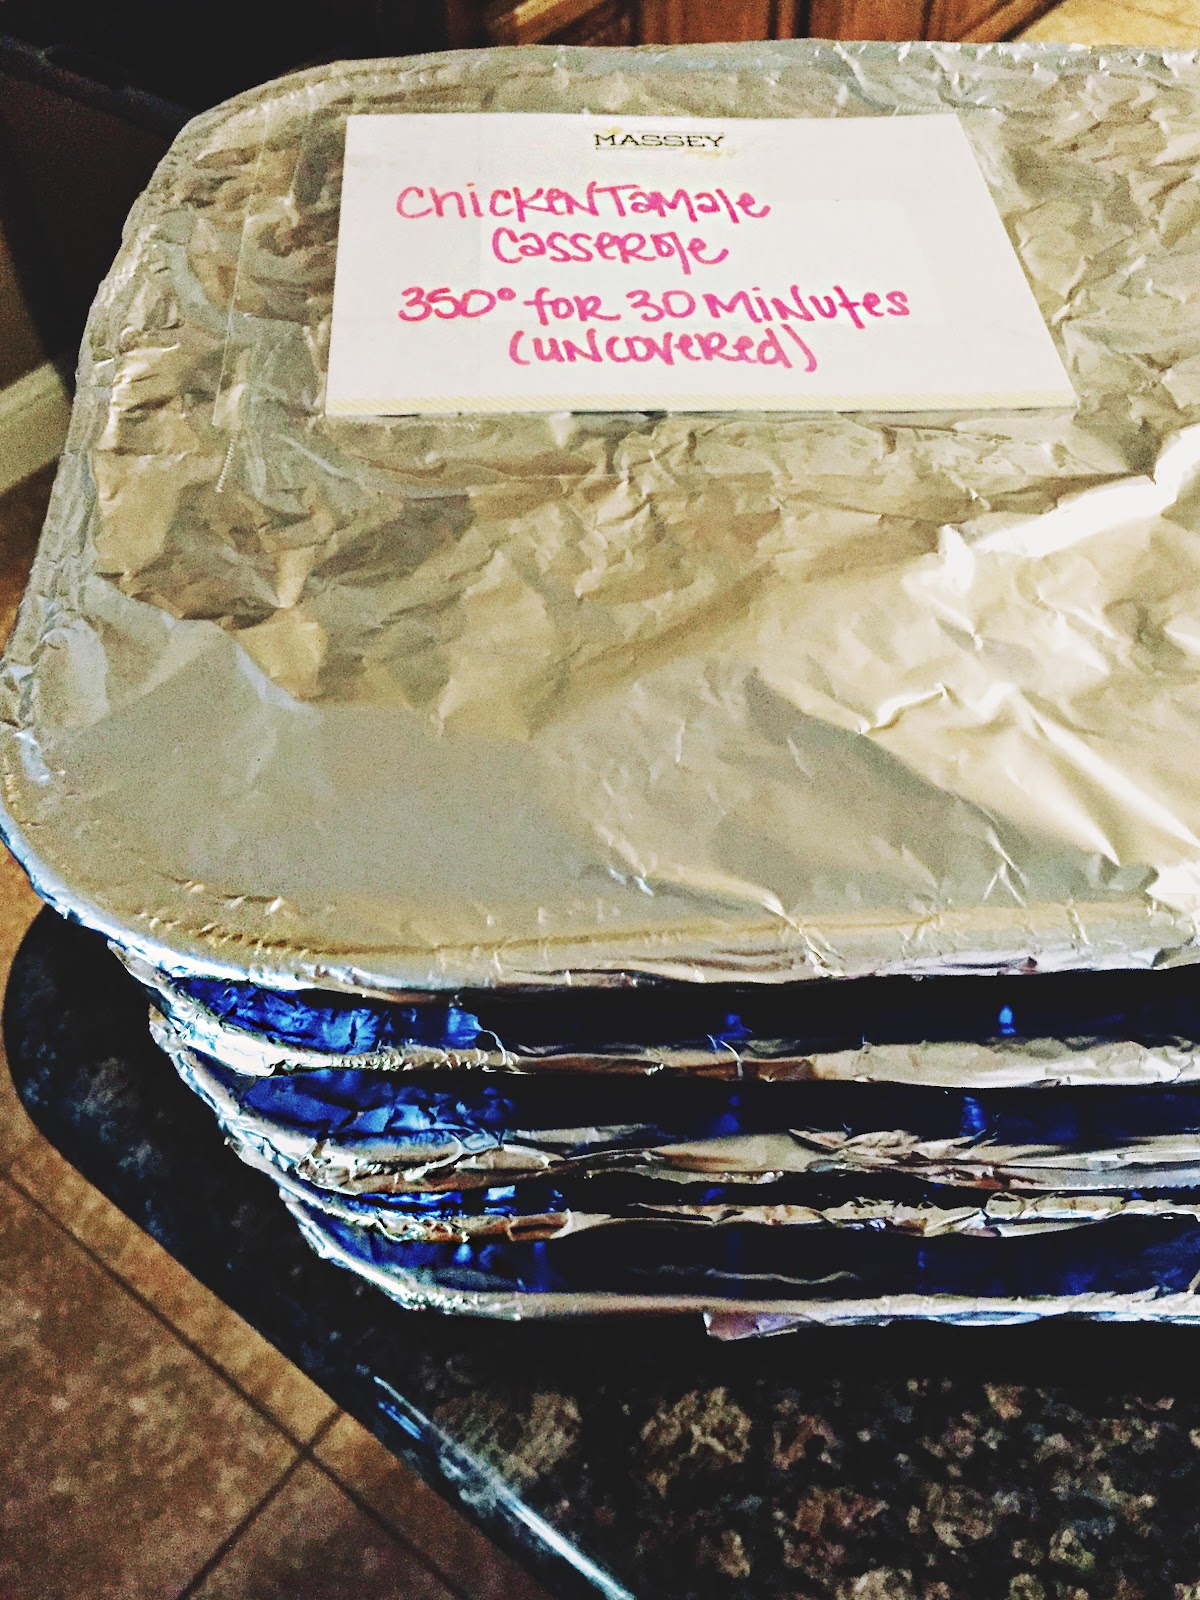 MASSEY
Chicken Tamale
Casserole
350° for 30 Minutes
(uncovered)